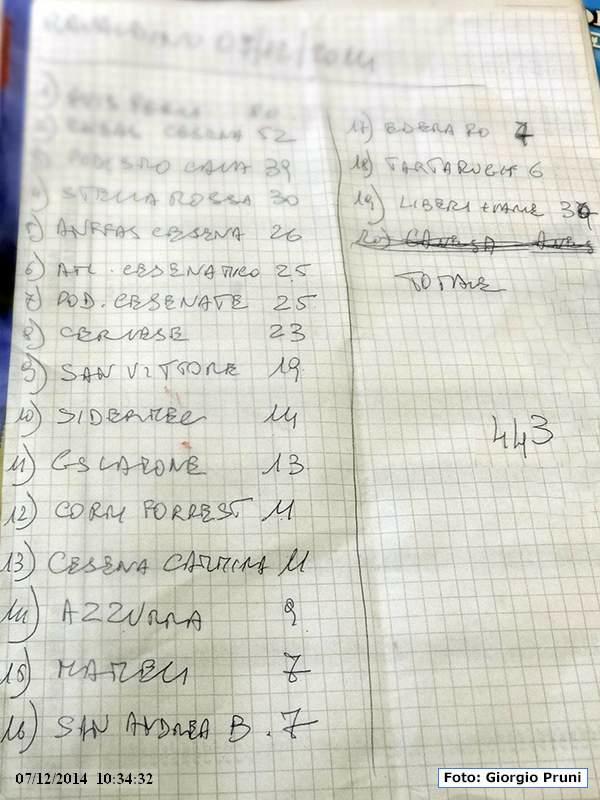 07/12/2014
1) AVIS FORLI 80
2) ENDAS CESENA 52
3) PODISMO CAVA 39
4) STELLA ROSSA 30
5) ANFFAS CESENA 26
6) ATL. CESENATICO 25
7) POD. CESENATE 25
8) CERVESE 23
9) SAN VITTORE 19
10) SIDERMEC 14
11) GS LAMONE 13
12) CORRI FORREST 11
13) CESENA CAMMINA 11
14) AZZURRA 9
15) MAMELI 7
16) SAN ANDREA B. 7
17) EDERA RO 7
18) TARTARUGHE 6
19) LIBERI
TOTALE
443
07/12/2014 10:34:32
Foto: Giorgio Pruni